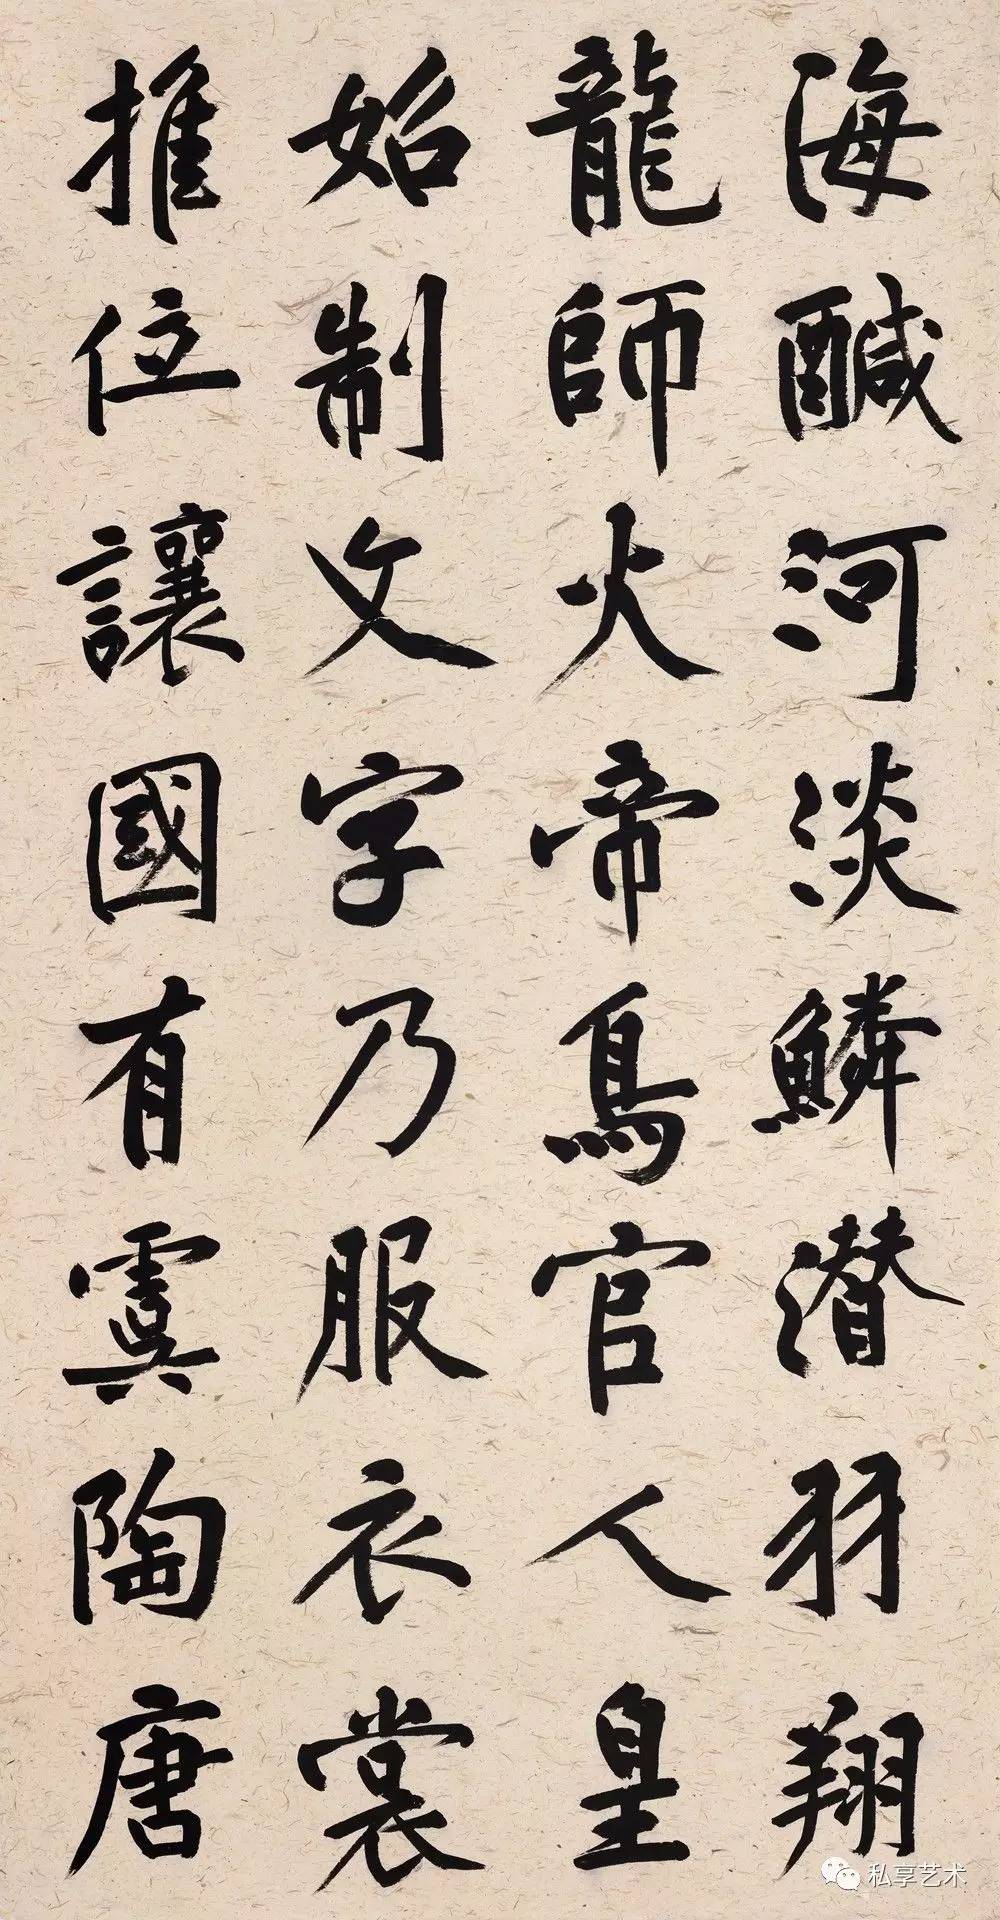 海鹹河淡鱗潜羽翔
龍師火帝鳥官人皇
始制文字乃服衣裳
推位讓國有虞陶唐
私享艺术